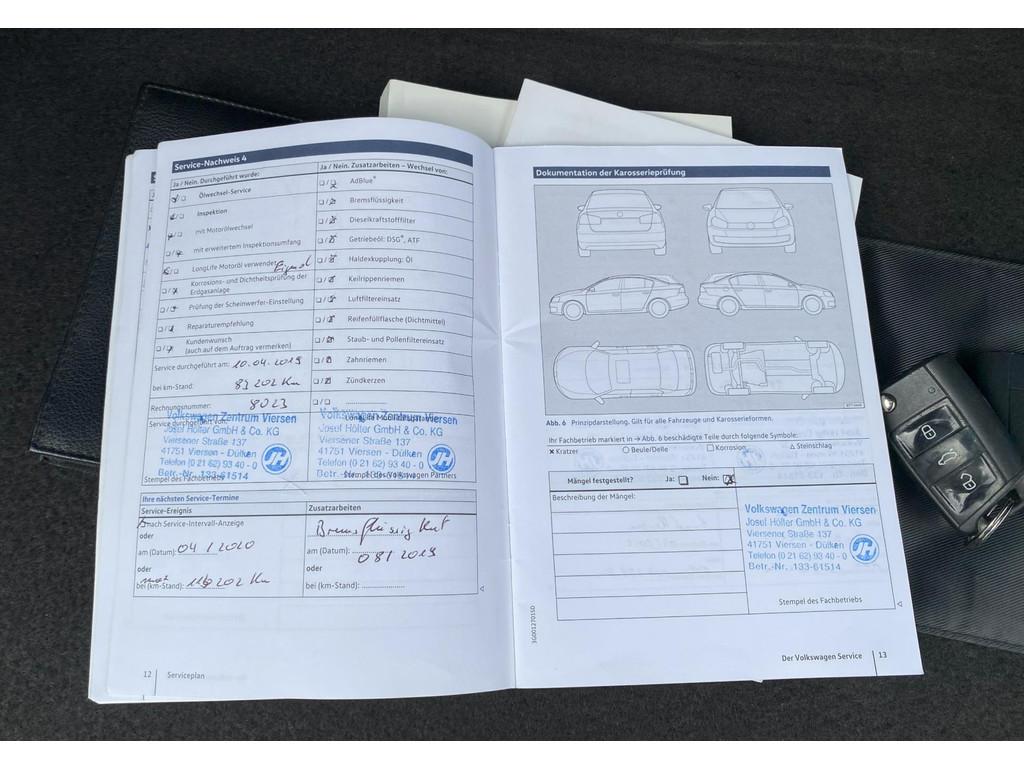 Service-Nachweis 4
Ja / Nein. Durchgeführt wurde:
Ölwechsel-Service
Inspektion
mit Motorölwechsel
mit erweitertem Inspektionsumfang
LongLife Motoröl verwendet
Korrosions- und Dichtheitsprüfung der
Erdgasanlage
Prüfung der Scheinwerfer-Einstellung
Reparaturempfehlung
Kundenwunsch
(auch auf dem Auftrag vermerken)
Service durchgeführt am: 10.04.2019
bei km-Stand: 87 202 Km
Rechnungsnummer: 8023
Service durchgeführt von:
Volkswagen Zentrum Viersen
Josef Hölter GmbH & Co. KG
Viersener Straße 137
41751 Viersen - Dülken
Telefon (0 21 62) 93 40 - 0
Betr.-Nr. 133-61514
JH
Stempel des Fachbetriebs
Ja / Nein. Zusatzarbeiten – Wechsel von:
AdBlue®
Bremsflüssigkeit
Dieselkraftstofffilter
Getriebeöl: DSG®, ATF
Haldexkupplung: Öl
Keilrippenriemen
Luftfiltereinsatz
Reifenfüllflasche (Dichtmittel)
Staub- und Pollenfiltereinsatz
Zahnriemen
Zündkerzen
Volkswagen Zentrum Viersen
Josef Hölter GmbH & Co. KG
Viersener Straße 137
41751 Viersen - Dülken
Telefon (0 21 62) 93 40 - 0
Betr.-Nr. 133-61514
JH
Stempel des Volkswagen Partners
Ihre nächsten Service-Termine
Service-Ereignis
nach Service-Intervall-Anzeige
oder
am (Datum): 04 / 2020
oder
bei (km-Stand): 116 202 Km
Zusatzarbeiten
Bremsflüssigkeit
am (Datum): 08 / 2019
oder
bei (km-Stand):
12 Serviceplan
Dokumentation der Karosserieprüfung
Abb. 6 Prinzipdarstellung. Gilt für alle Fahrzeuge und Karosserieformen.
Ihr Fachbetrieb markiert in → Abb. 6 beschädigte Teile durch folgende Symbole:
Kratzer Beule/Delle Korrosion Steinschlag
Mängel festgestellt? Ja: Nein:
Beschreibung der Mängel:
Volkswagen Zentrum Viersen
Josef Hölter GmbH & Co. KG
Viersener Straße 137
41751 Viersen - Dülken
Telefon (0 21 62) 93 40 - 0
Betr.-Nr. 133-61514
JH
Stempel des Fachbetriebs
3G0012701SD
Der Volkswagen Service 13